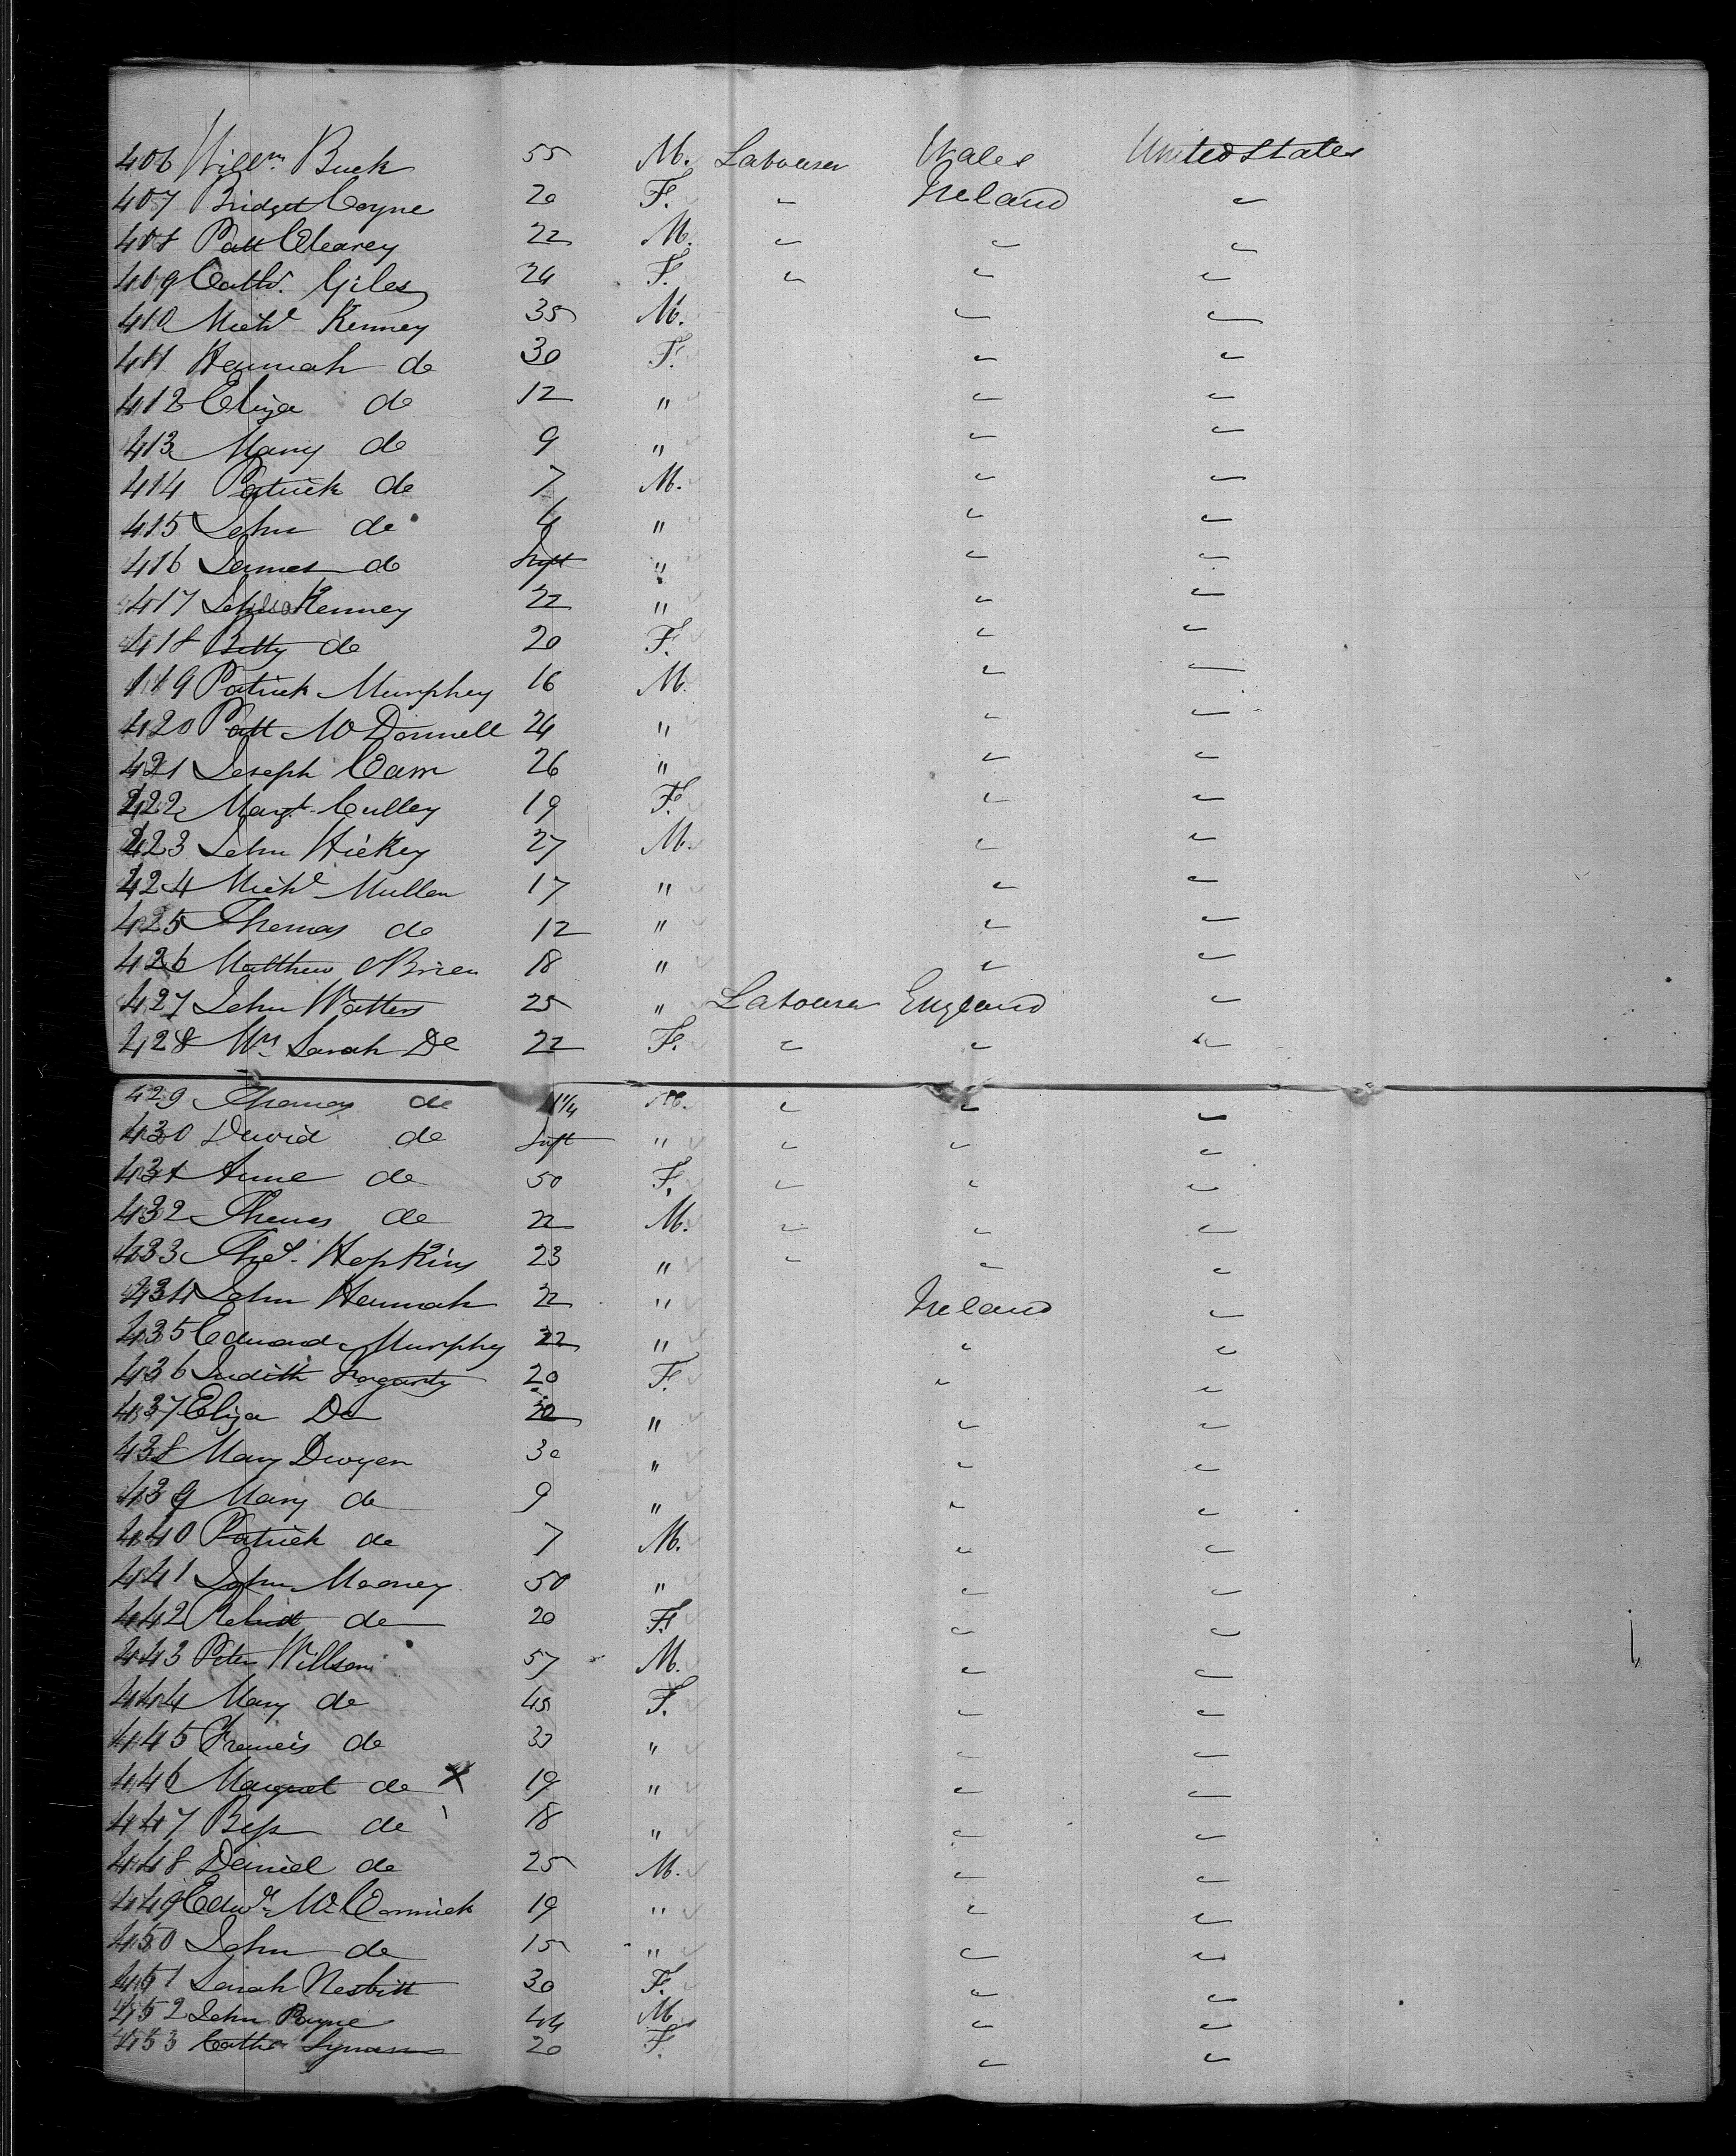 406 Willm Buck 55 M. Labourer Wales United States
407 Bridget Coyne 20 F. " Ireland "
408 Patt Clearey 22 M. " " "
409 Cath. Giles 24 F. " " "
410 Michl Kenney 35 M. " "
411 Hannah do 30 F. " "
412 Eliza do 12 " " "
413 Mary do 9 " " "
414 Patrick do 7 M. " "
415 John do 4 " " "
416 James do Inft " " "
417 Kenney 22 " " "
418 Betty do 20 F. " "
419 Patrick Murphey 16 M. " "
420 Patt McDonnell 24 " " "
421 Joseph Cam 26 " " "
422 Margt Culley 19 F. " "
423 John Hickey 27 M. " "
424 Michl Mullen 17 " " "
425 Thomas do 12 " " "
426 Matthew OBrien 18 " " "
427 John Watters 25 " Labourer England "
428 Mrs Sarah Do 22 F. " " "
429 Thomas do 1¼ M. " " "
430 David do Inft " " " "
431 Anne do 50 F. " " "
432 Thomas do 22 M. " " "
433 Thos. Hopkins 23 " " " "
434 John Hannah 22 " Ireland "
435 Edward Murphy 22 " " "
436 Judith Fogarty 20 F. " "
437 Eliza Do " " "
438 Mary Dwyer 30 " " "
439 Mary do 9 " " "
440 Patrick do 7 M. " "
441 John Mooney 50 " " "
442 do 20 F. " "
443 Peter Willson 57 M. " "
444 Mary do 45 F. " "
445 Francis do " " "
446 Margret do X 19 " " "
447 Bess do 18 " " "
448 Daniel do 25 M. " "
449 Edwd McCormick 19 " " "
450 John do 15 " " "
451 Sarah Nesbitt 30 F. " "
452 John Payne 44 M. " "
453 Cathe 20 F. " "